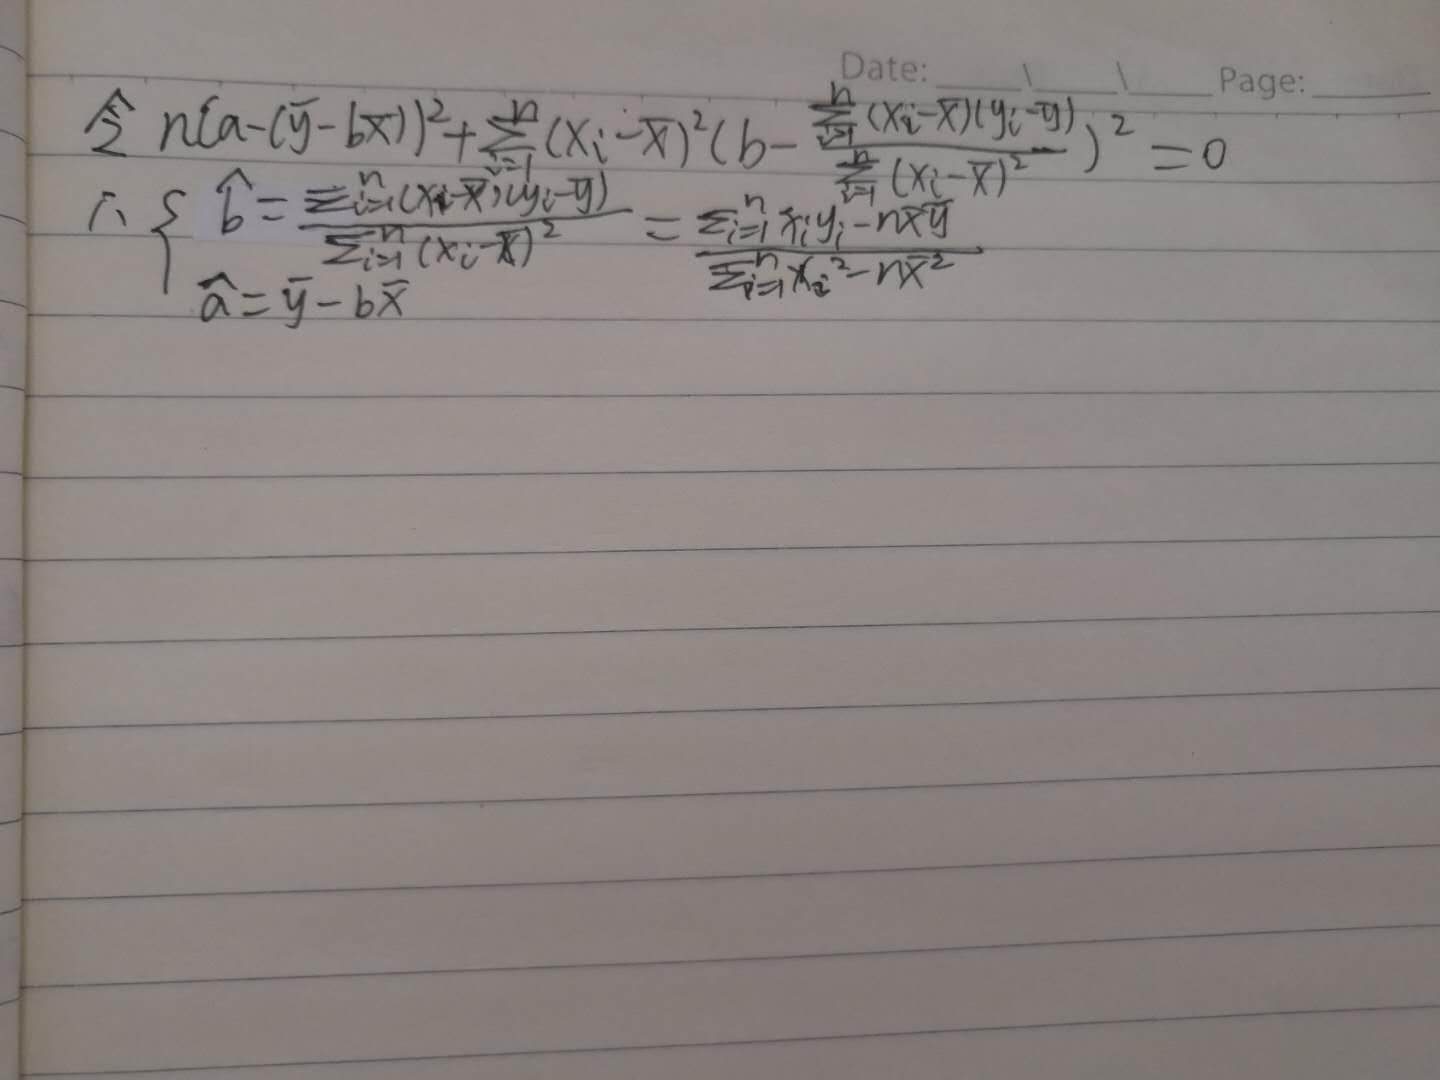 Date: ____\____\____ Page: ______
令 n(a-(y̅-bx̅))²+∑ⁿᵢ₌₁(xᵢ-x̅)²(b-\frac{∑ⁿᵢ₌₁(xᵢ-x̅)(yᵢ-y̅)}{∑ⁿᵢ₌₁(xᵢ-x̅)²})²=0
∴ { b̂=\frac{∑ᵢ₌₁ⁿ(xᵢ-x̅)(yᵢ-y̅)}{∑ᵢ₌₁ⁿ(xᵢ-x̅)²}=\frac{∑ᵢ₌₁ⁿxᵢyᵢ-nx̅y̅}{∑ᵢ₌₁ⁿxᵢ²-nx̅²}
â=y̅-bx̅